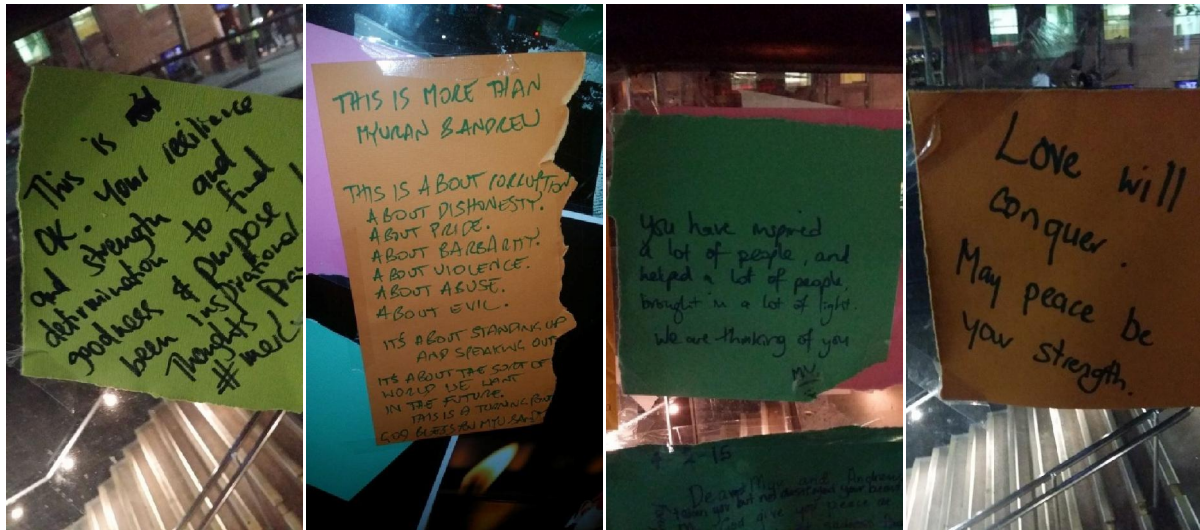 This is not
OK. Your resilience
and strength and
determination to find
goodness & purpose
been inspirational
Thoughts
THIS IS MORE THAN
MYURAN & ANDREW
THIS IS ABOUT CORRUPTION
ABOUT DISHONESTY.
ABOUT PRIDE.
ABOUT BARBARITY.
ABOUT VIOLENCE.
ABOUT ABUSE.
ABOUT EVIL.
IT'S ABOUT STANDING UP
AND SPEAKING OUT
IT'S ABOUT THE SORT OF
WORLD WE WANT
IN THE FUTURE.
THIS IS A TURNING POINT
GOD BLESS YOU MYU
You have inspired
a lot of people, and
helped a lot of people,
brought in a lot of light.
We are thinking of you
MV
2-15
Dear Myu and Andrew
but not
God give you peace
Love will
conquer.
May peace be
your strength.